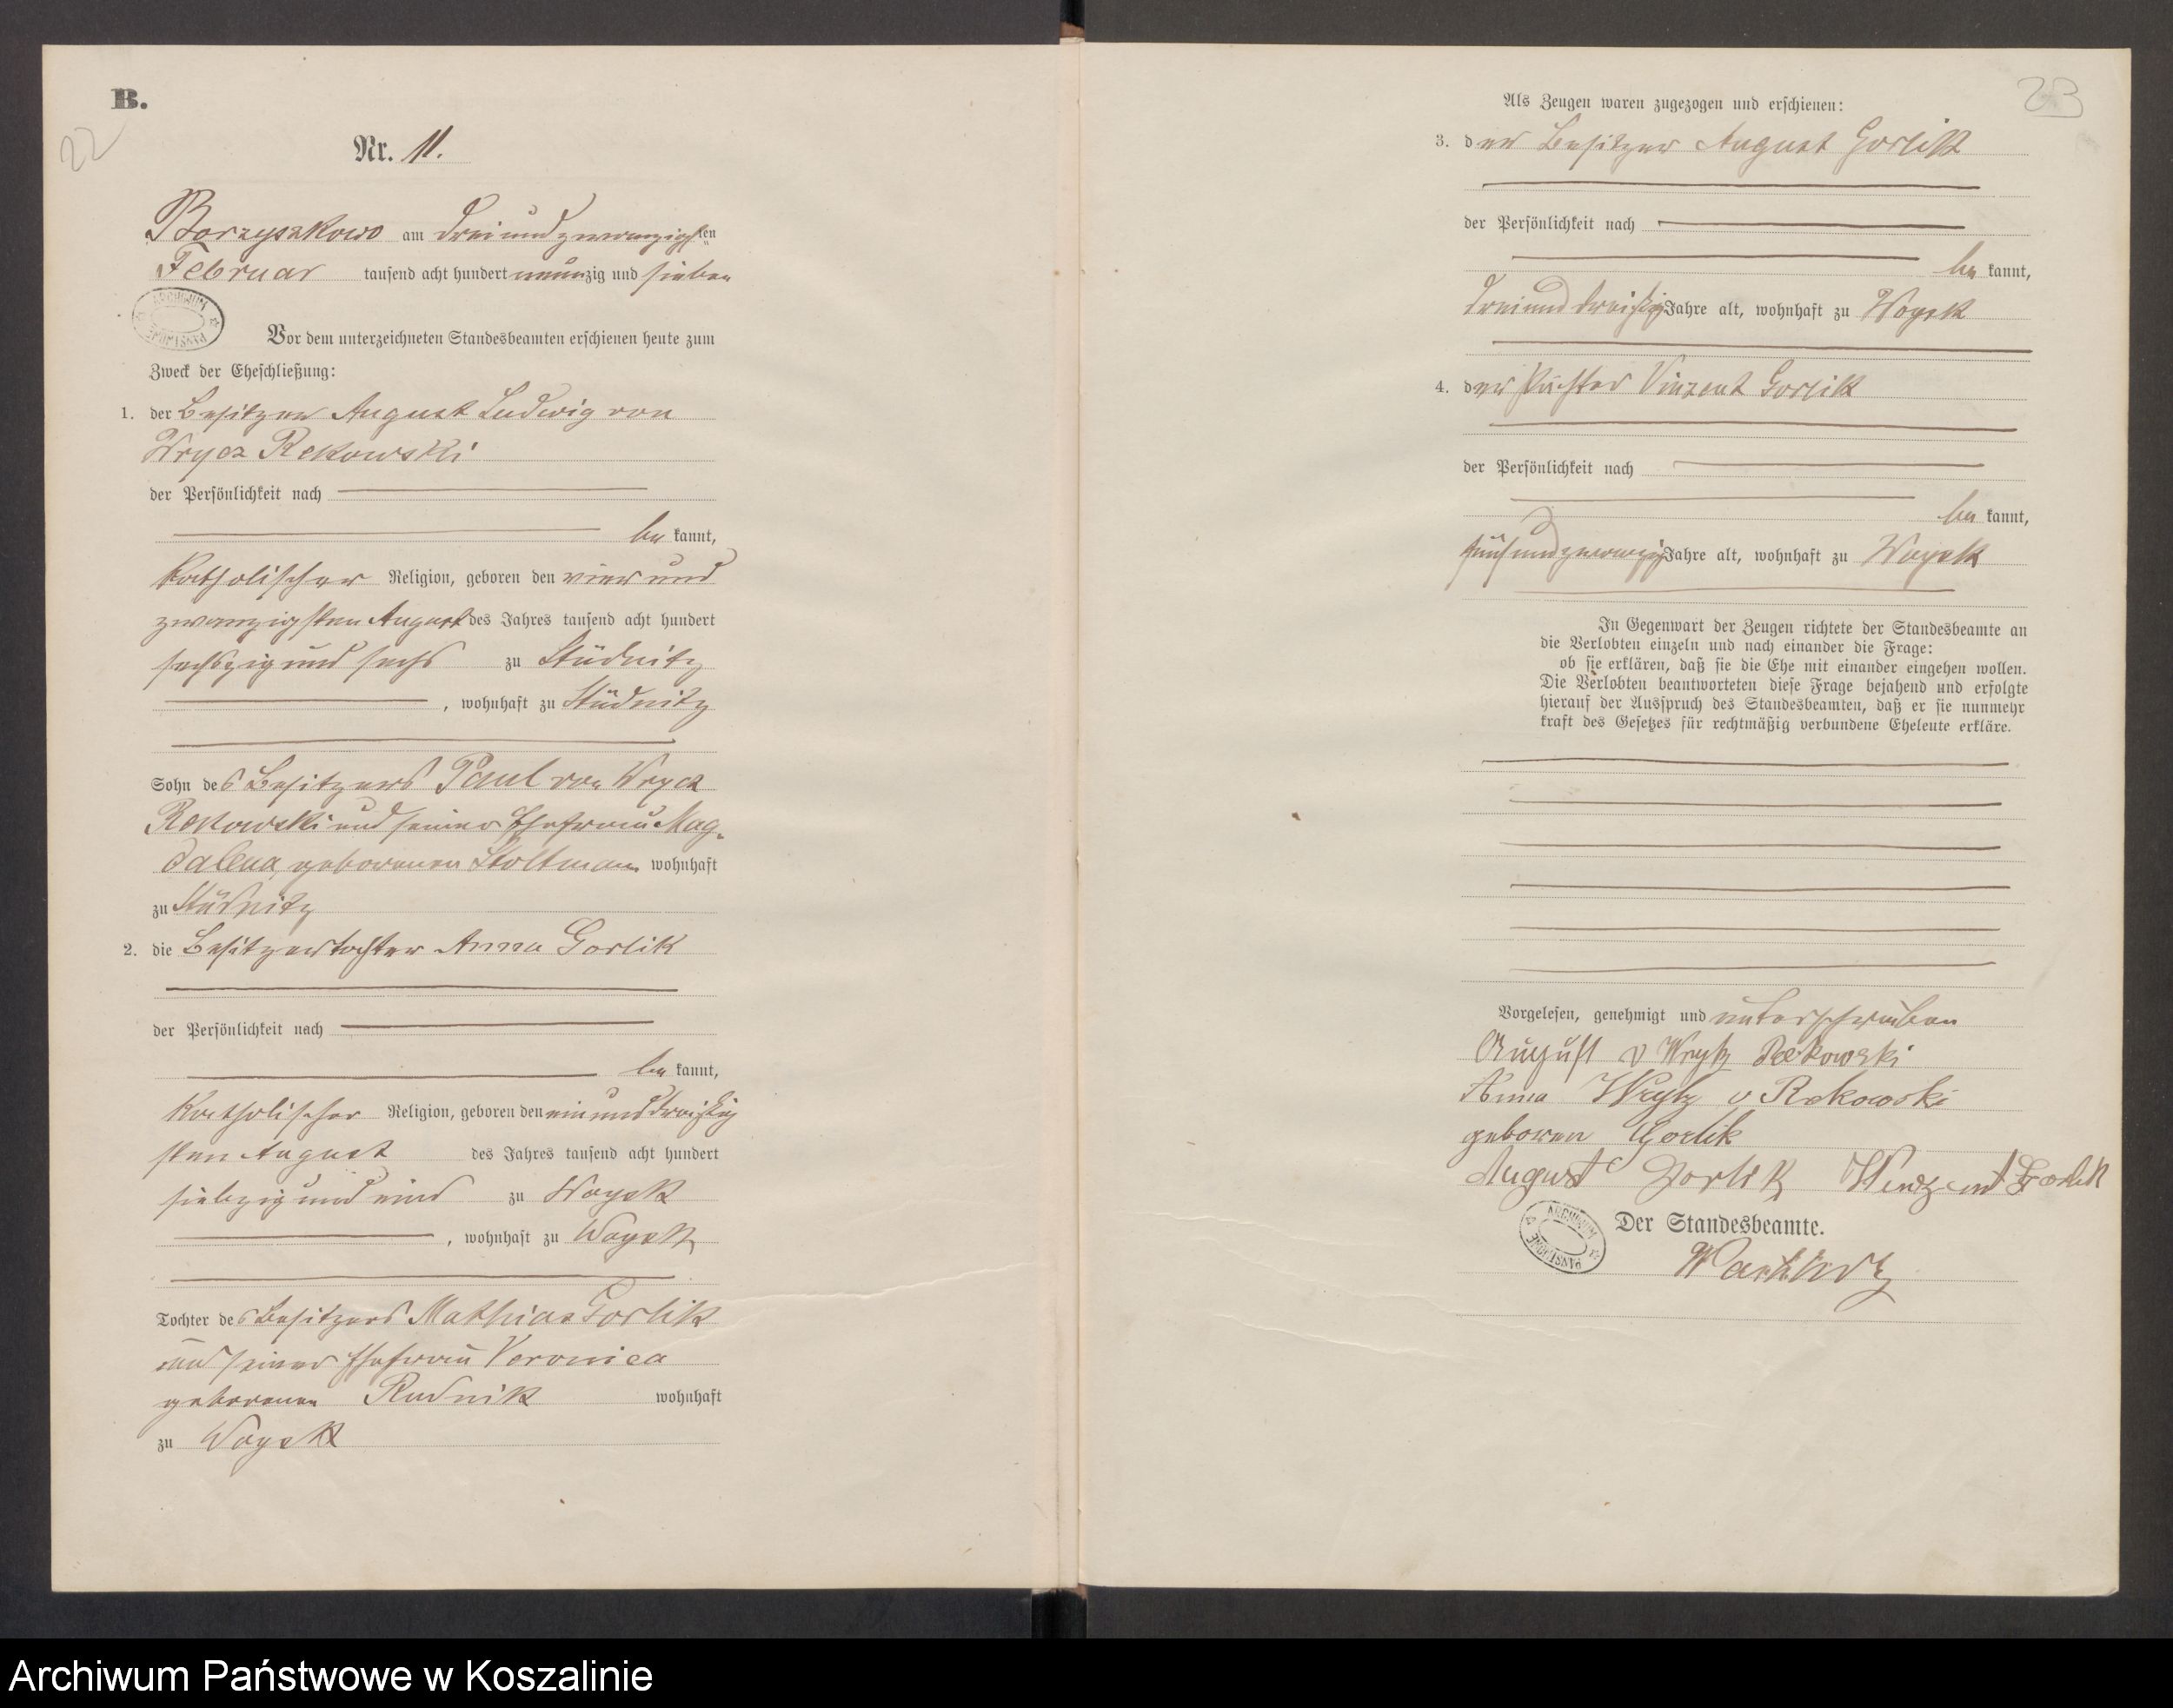 B.
22
Nr. 11.
Borzyszkowo am dreiundzwanzigsten
Februar tausend acht hundert neunzig und sieben
ARCHIWUM PAŃSTWOWE
Vor dem unterzeichneten Standesbeamten erschienen heute zum
Zweck der Eheschließung:
1. der Besitzer August Ludwig von
Wrycz Rekowski
der Persönlichkeit nach
be kannt,
katholischer Religion, geboren den vier und
zwanzigsten August des Jahres tausend acht hundert
sechszig und sechs zu Stüdnitz
, wohnhaft zu Stüdnitz
Sohn des Besitzers Paul von Wrycz
Rekowski und seiner Ehefrau Mag-
dalena, geborenen Stoltmann wohnhaft
zu Stüdnitz
2. die Besitzertochter Anna Gorlik
der Persönlichkeit nach
be kannt,
katholischer Religion, geboren den einunddreißig
sten August des Jahres tausend acht hundert
siebzig und eins zu Woysk
, wohnhaft zu Woysk
Tochter des Besitzers Mathias Gorlik
und seiner Ehefrau Veronica
geborenen Rudnik wohnhaft
zu Woysk
23
Als Zeugen waren zugezogen und erschienen:
3. der Besitzer August Gorlik
der Persönlichkeit nach
be kannt,
dreiunddreißig Jahre alt, wohnhaft zu Woysk
4. der Pächter Vinzent Gorlik
der Persönlichkeit nach
be kannt,
fünfundzwanzig Jahre alt, wohnhaft zu Woysk
In Gegenwart der Zeugen richtete der Standesbeamte an
die Verlobten einzeln und nach einander die Frage:
ob sie erklären, daß sie die Ehe mit einander eingehen wollen.
Die Verlobten beantworteten diese Frage bejahend und erfolgte
hierauf der Ausspruch des Standesbeamten, daß er sie nunmehr
kraft des Gesetzes für rechtmäßig verbundene Eheleute erkläre.
Vorgelesen, genehmigt und unterschrieben
August v Wrytz Rekowski
Anna Wrytz v Rekowski
geboren Gorlik
August Gorlik Winzent Gorlik
ARCHIWUM PAŃSTWOWE
Der Standesbeamte.
Archiwum Państwowe w Koszalinie